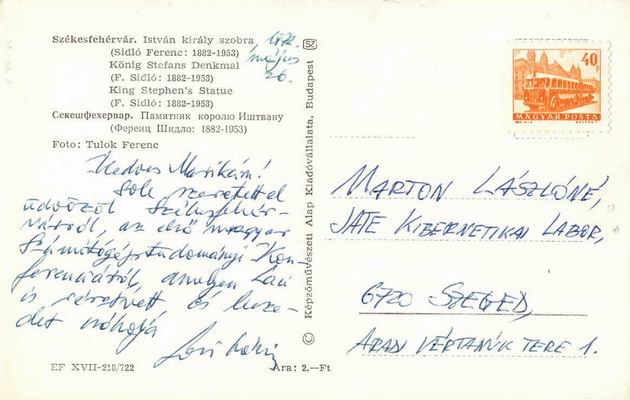 Székesfehérvár. István király szobra
(Sidló Ferenc: 1882-1953)
König Stefans Denkmal
(F. Sidló: 1882-1953)
King Stephen's Statue
(F. Sidló: 1882-1953)
Секешфехервар. Памятник королю Иштвану
(Ференц Шидло: 1882-1953)
Foto: Tulok Ferenc
május
20.
Kedves Marikám!
Sok szeretettel
üdvözöl Székesfehér-
várról, az első magyar
Számítógéptudományi Kon-
ferenciáról, amelyen Laci
is résztvett és
EF XVII-218/722
Ára: 2,—Ft
© Képzőművészeti Alap Kiadóvállalata, Budapest
40
MAGYAR POSTA
MARTON LÁSZLÓNÉ,
JATE KIBERNETIKAI LABOR,
6720 SZEGED,
ARADI VÉRTANÚK TERE 1.